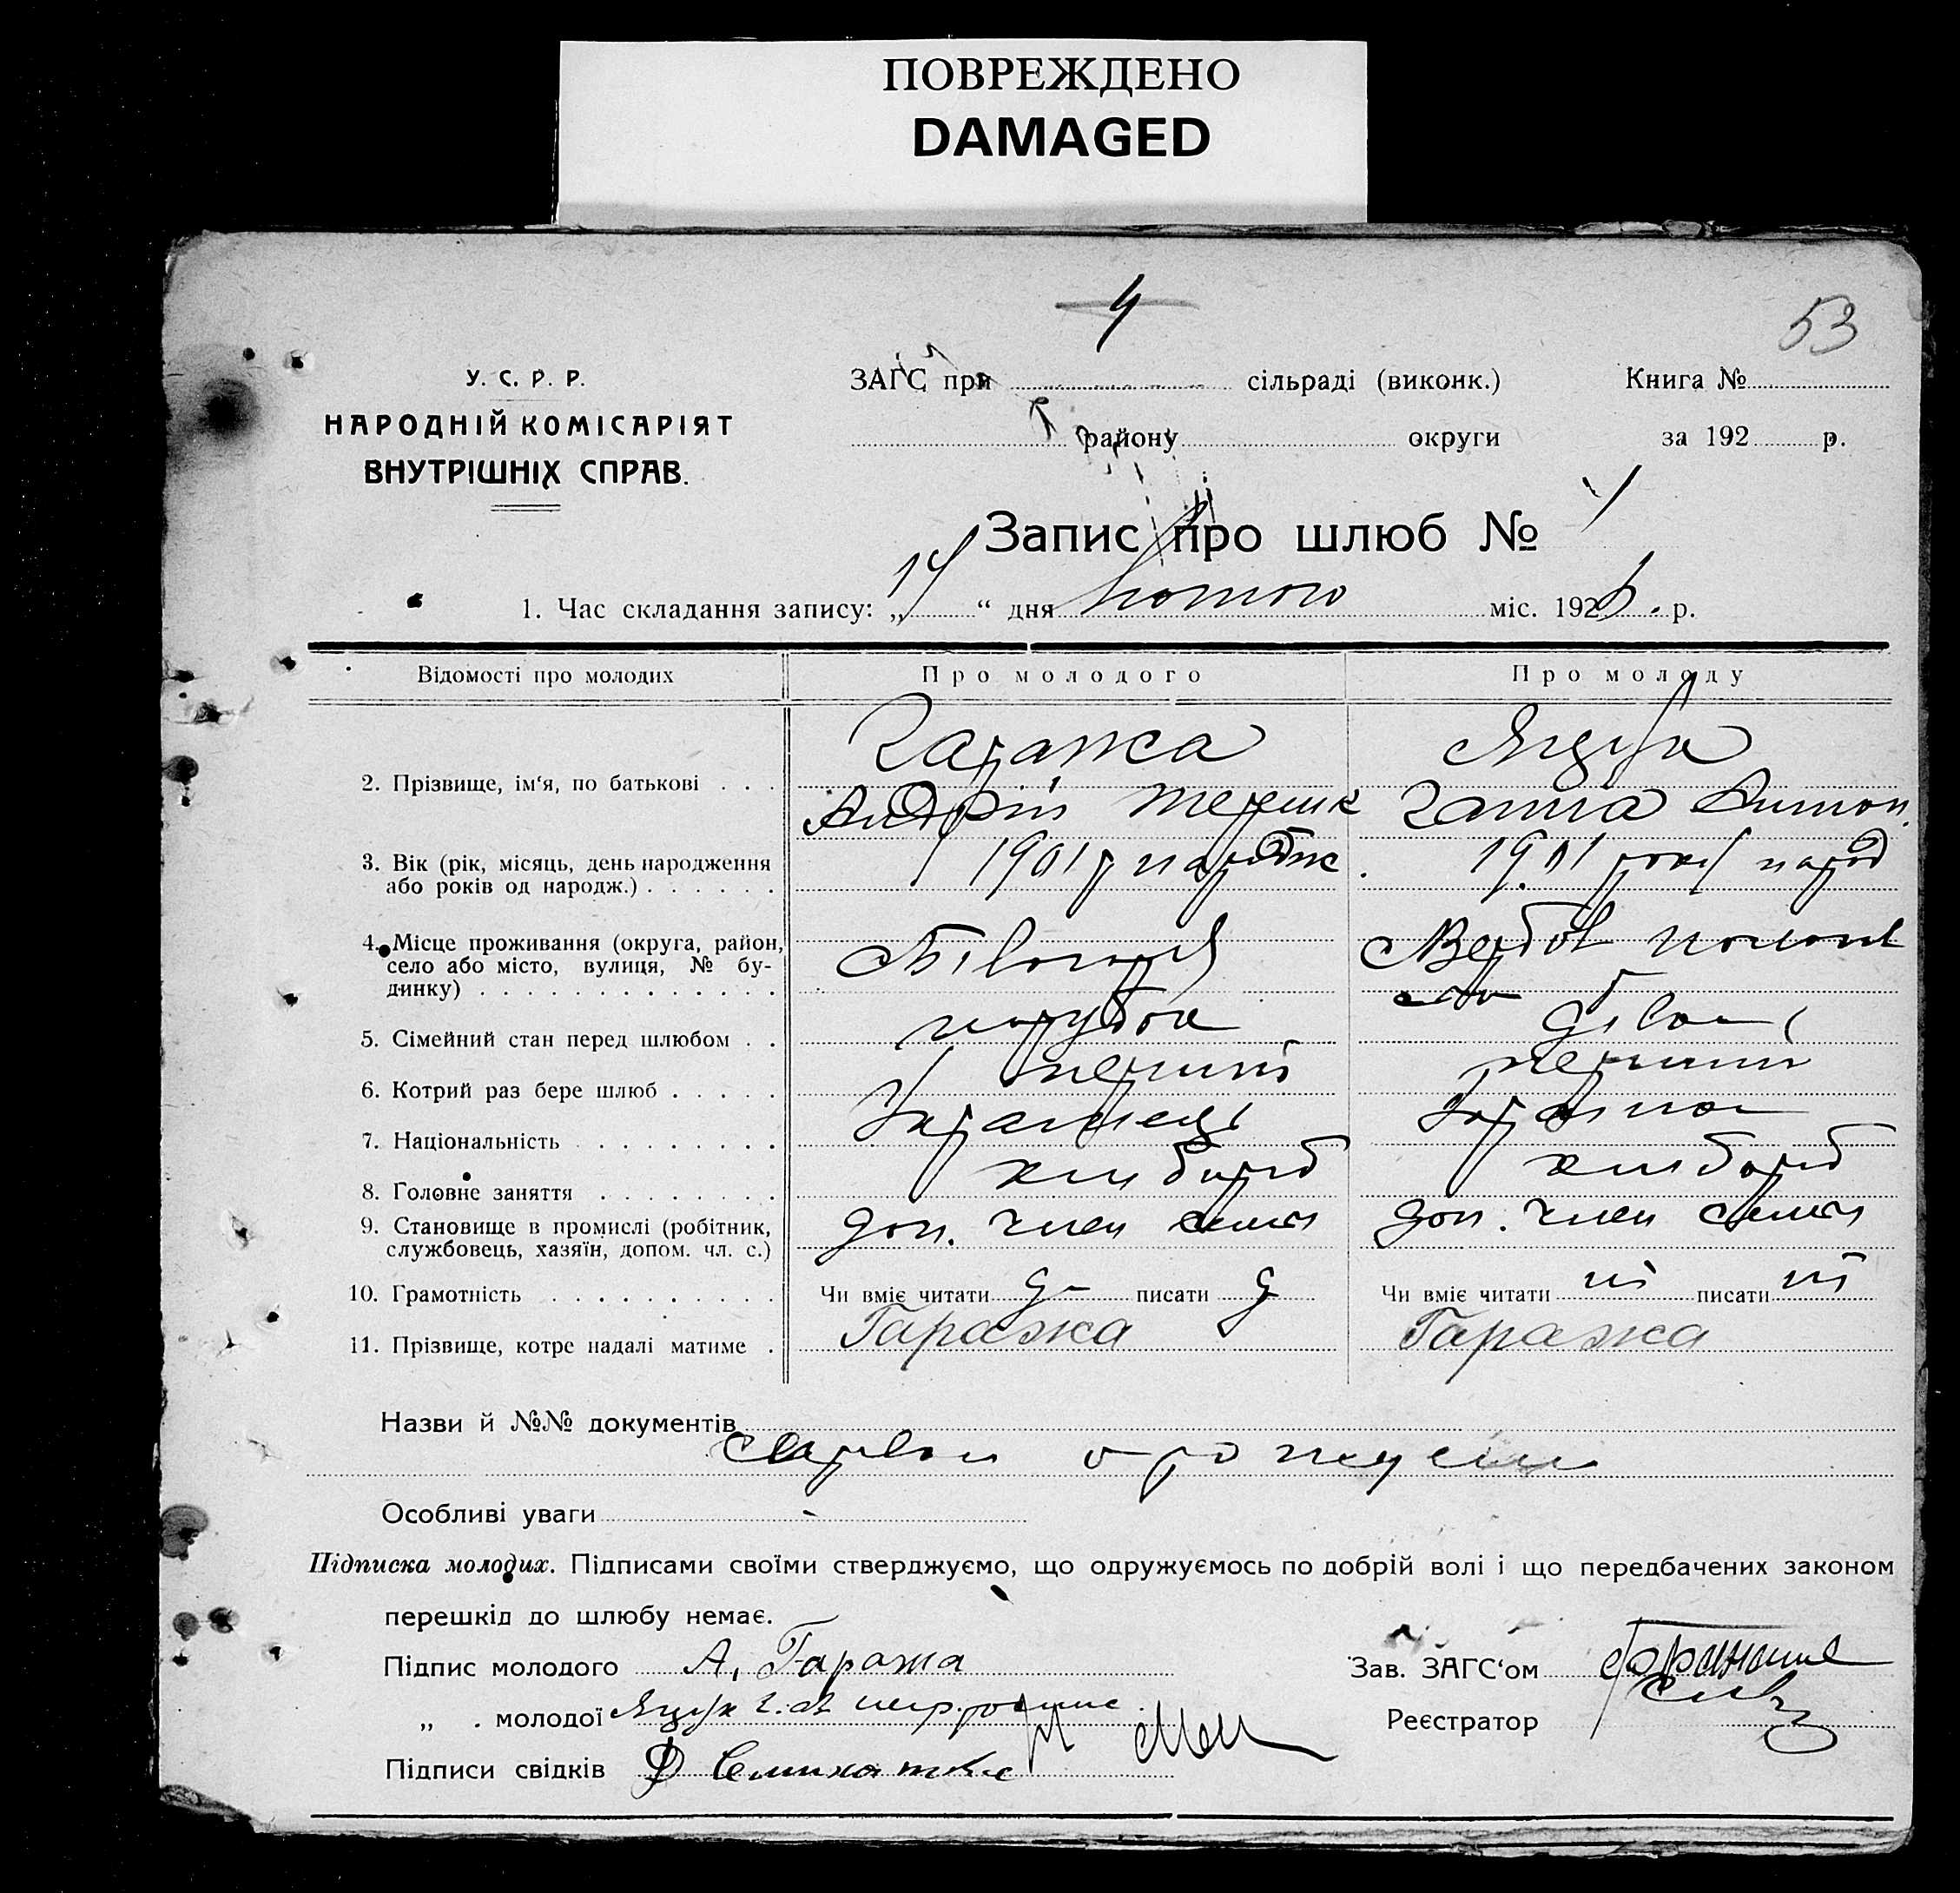 ПОВРЕЖДЕНО
DAMAGED
4
53
У. С. Р. Р.
НАРОДНІЙ КОМІСАРІЯТ
ВНУТРІШНІХ СПРАВ.
ЗАГС при сільраді (виконк.) Книга №
району округи за 192 р.
Запис про шлюб № 4
1. Час складання запису: „14“ дня лютого міс. 1926 р.
Відомості про молодих Про молодого Про молоду
Гаража Яцук
2. Прізвище, ім‘я, по батькові . . .
Андрій Терешк Ганна Антон.
3. Вік (рік, місяць, день народження 1901 р народж 1901 року народ
або років од народж.) . . . . . .
4. Місце проживання (округа, район, Вербов
село або місто, вулиця, № бу-
динку) . . . . . . . . . . . . .
5. Сімейний стан перед шлюбом . . парубок
6. Котрий раз бере шлюб . . . . . перший перший
7. Національність . . . . . . . . Українець Українка
8. Головне заняття . . . . . . . . хлібороб хлібороб
9. Становище в промислі (робітник, доп. член семьи доп. член семьи
службовець, хазяїн, допом. чл. с.)
10. Грамотність . . . . . . . . . . Чи вміє читати писати Чи вміє читати ні писати ні
11. Прізвище, котре надалі матиме . Гаража Гаража
Назви й №№ документів
Особливі уваги -
Підписка молодих. Підписами своїми стверджуємо, що одружуємось по добрій волі і що передбачених законом
перешкід до шлюбу немає.
Підпис молодого А. Гаража Зав. ЗАГС‘ом
„ . молодої Яцук Реєстратор
Підписи свідків